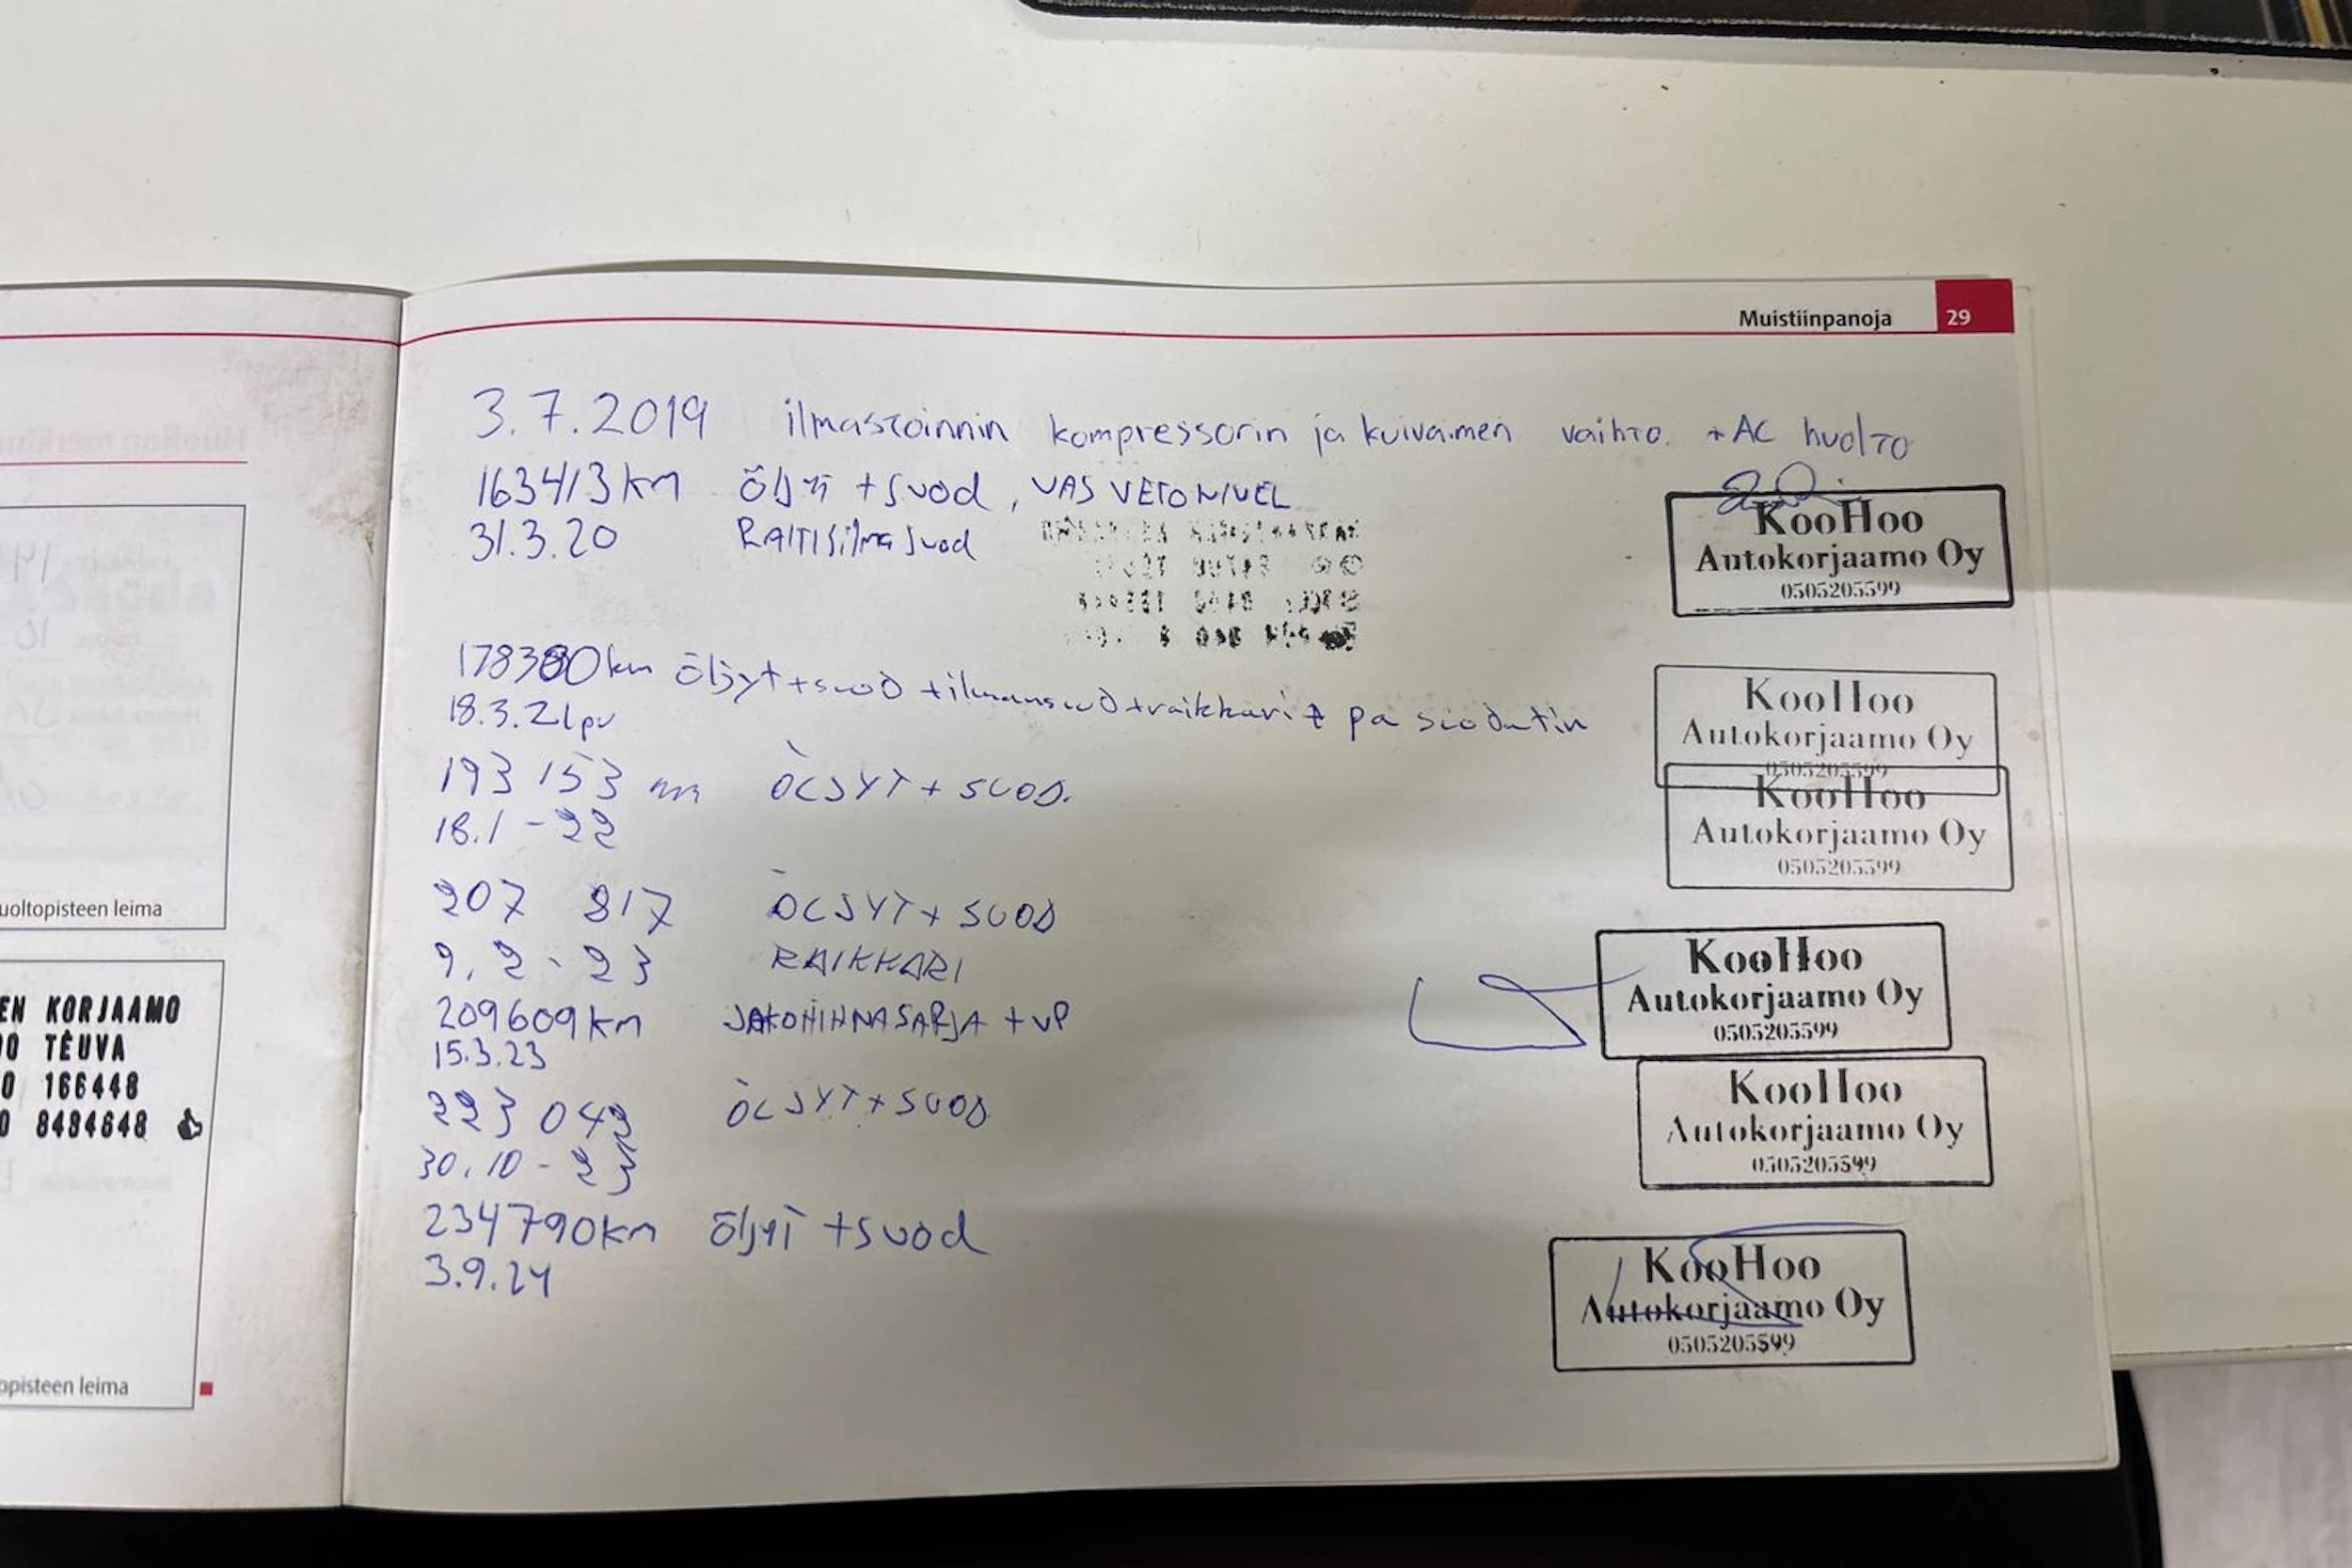 Muistiinpanoja 29
3.7.2019 ilmastoinnin kompressorin ja kuivaimen vaihto. + AC huolto
163413km öljyt + suod, VAS VETONIVEL
31.3.20 RAITISilma suod
KooHoo
Autokorjaamo Oy
0505205599
178380km öljyt+suod +ilmansuod+raikkari + pa suodatin
18.3.21
KooHoo
Autokorjaamo Oy
0505205599
193 153 ÖLJYT + SUOD.
18.1-22
KooHoo
Autokorjaamo Oy
0505205599
207 817 ÖLJYT + SUOD
9.2.23 RAIKKARI
KooHoo
Autokorjaamo Oy
0505205599
209609km JAKOHIHNASARJA + VP
15.3.23
KooHoo
Autokorjaamo Oy
0505205599
223 042 ÖLJYT + SUOD
30.10-23
234790km öljyt + suod
3.9.24
KooHoo
Autokorjaamo Oy
0505205599
uoltopisteen leima
EN KORJAAMO
00 TEUVA
0 166448
0 8484648
opisteen leima